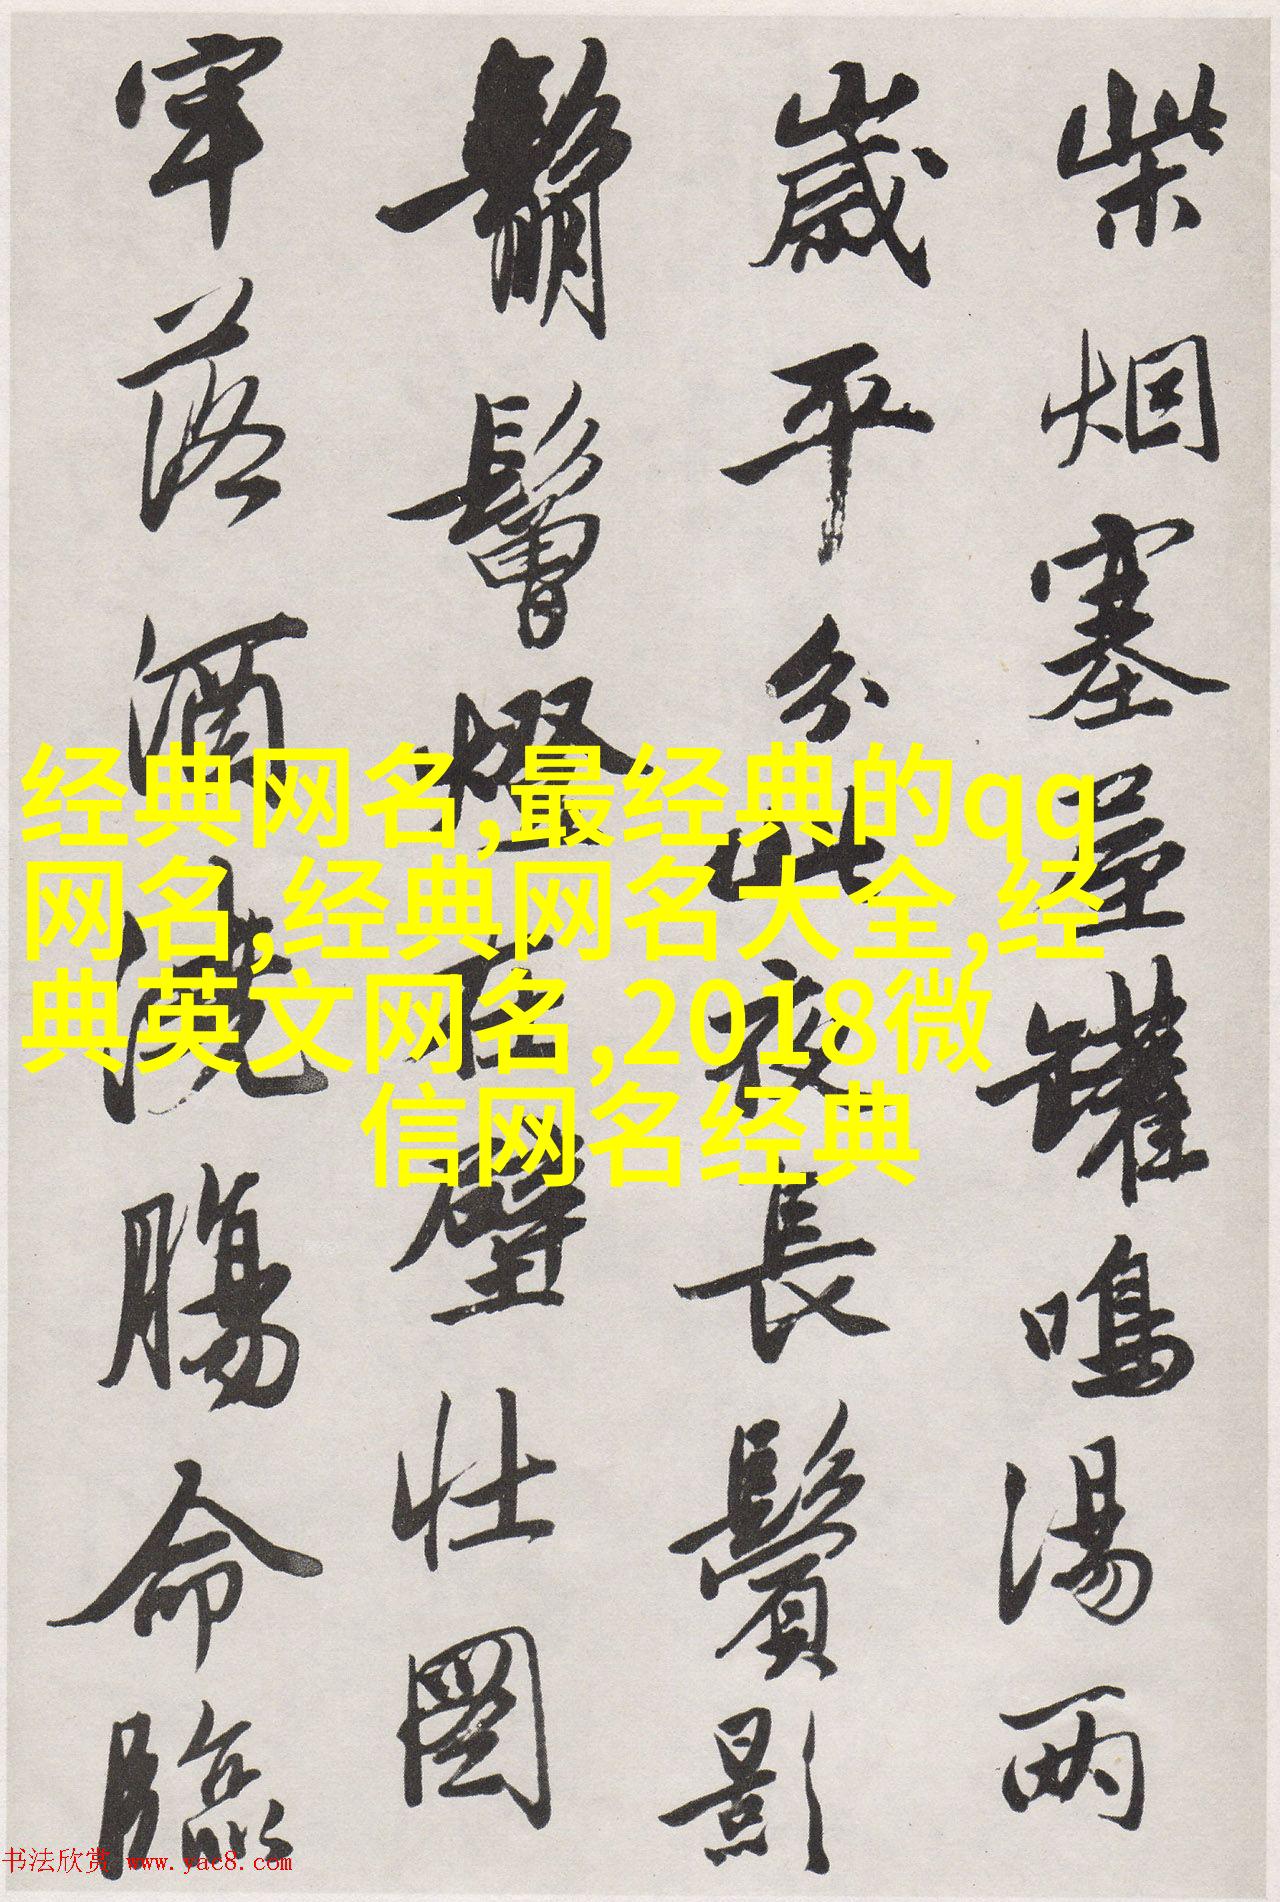 柴烟塞屋罐鳴湯兩
歲平分此夜長鬢影
鬅鬙燈在壁壯圖
牢落酒澆腸命臨
经典网名,最经典的qq
网名,经典网名大全,经
典英文网名,2018微
信网名经典
书法欣赏 www.yac8.com